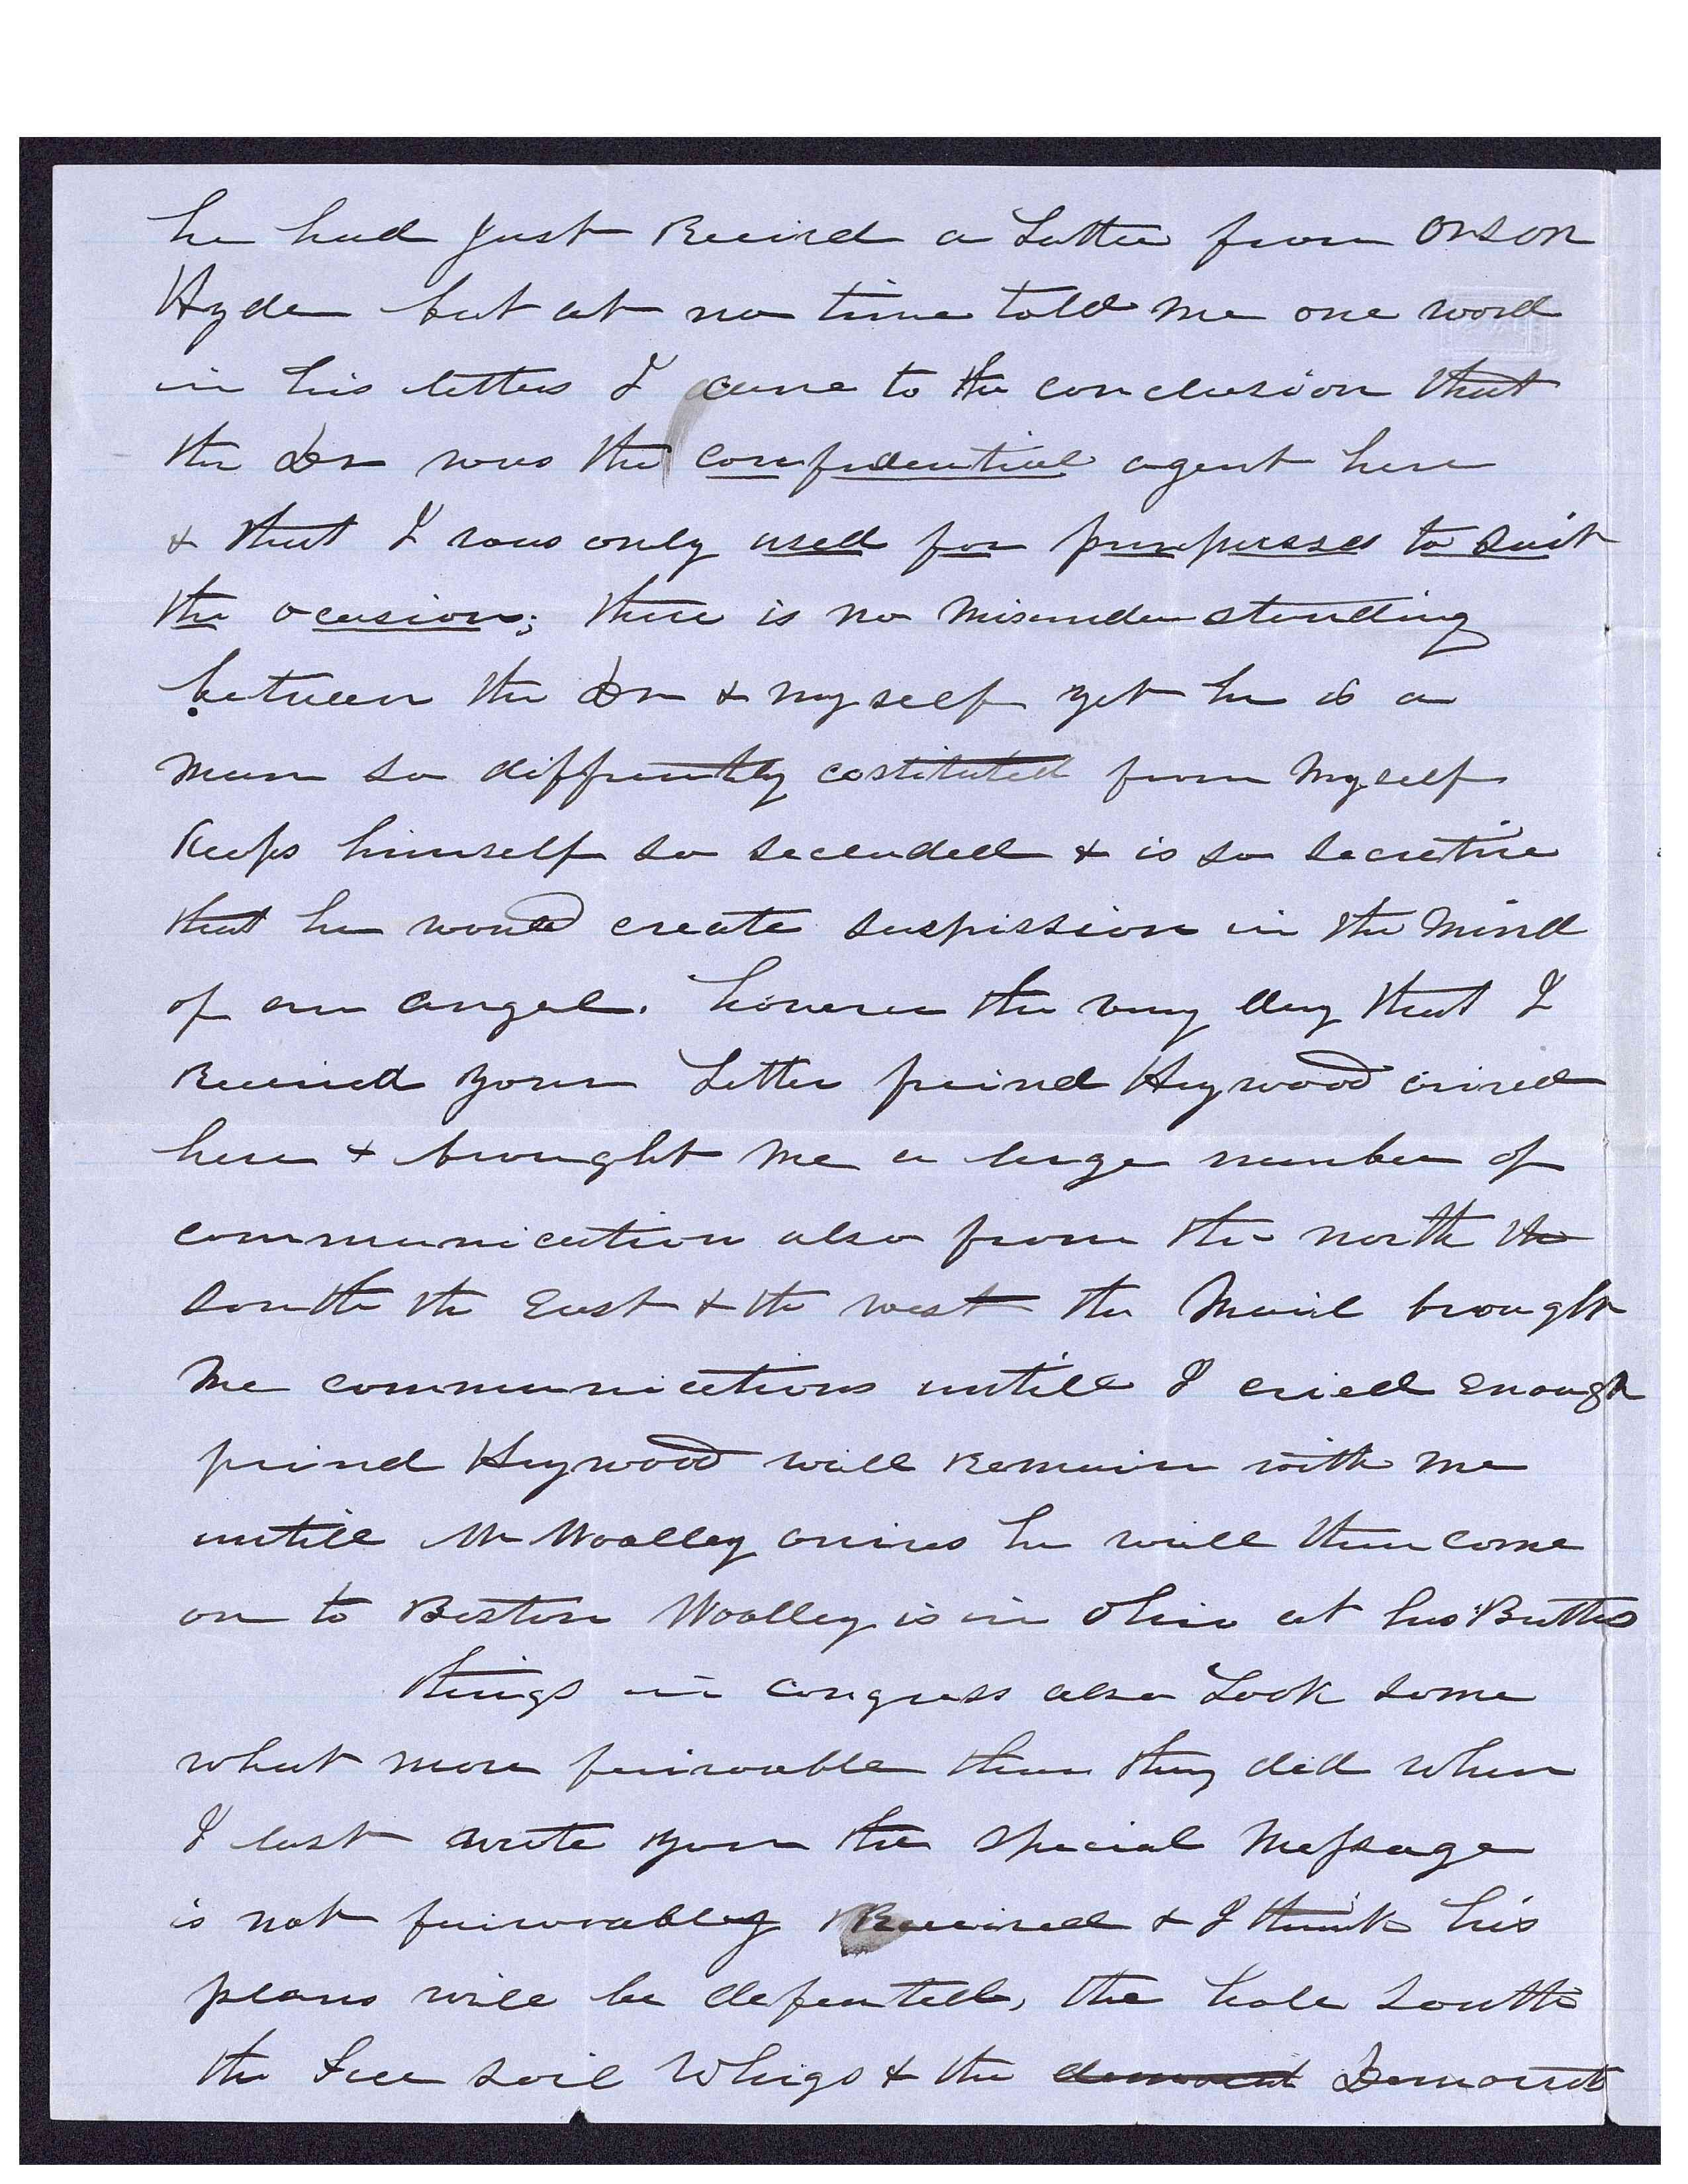 he had just Recived a Letter from Orson
Hyde but at no time told me one word
in his letters I came to the conclusion that
the Dr was the confidential agent here
& that I was only used for purpusses to suit
the ocasion; there is no misunderstanding
between the Dr & myself yet he is a
man so diffrently costituted from myself
Keeps himself so secluded & is so secretive
that he would create suspission in the mind
of an angel. however the very day that I
Received your Letter freind Heywood arived
here & brought me a large number of
communication also from the north the
South the East & the west the Mail brought
me communications untill I cried enough
freind Heywood will Remain with me
untill Mr Woolley arives he will then come
on to Boston Woolley is in Ohio at his Brothers
things in congress also Look some
what more faivorable than they did when
I last wrote you the special Message
is not faivorabley Received & I think his
plans will be defeated, the hole South
the Free soil Whigs & the democrat Democrats